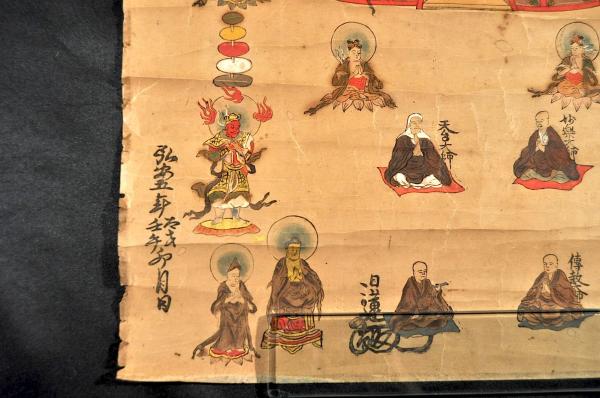 天台大師
妙樂大師
弘安五年壬午卯月日
日蓮
傳教大師